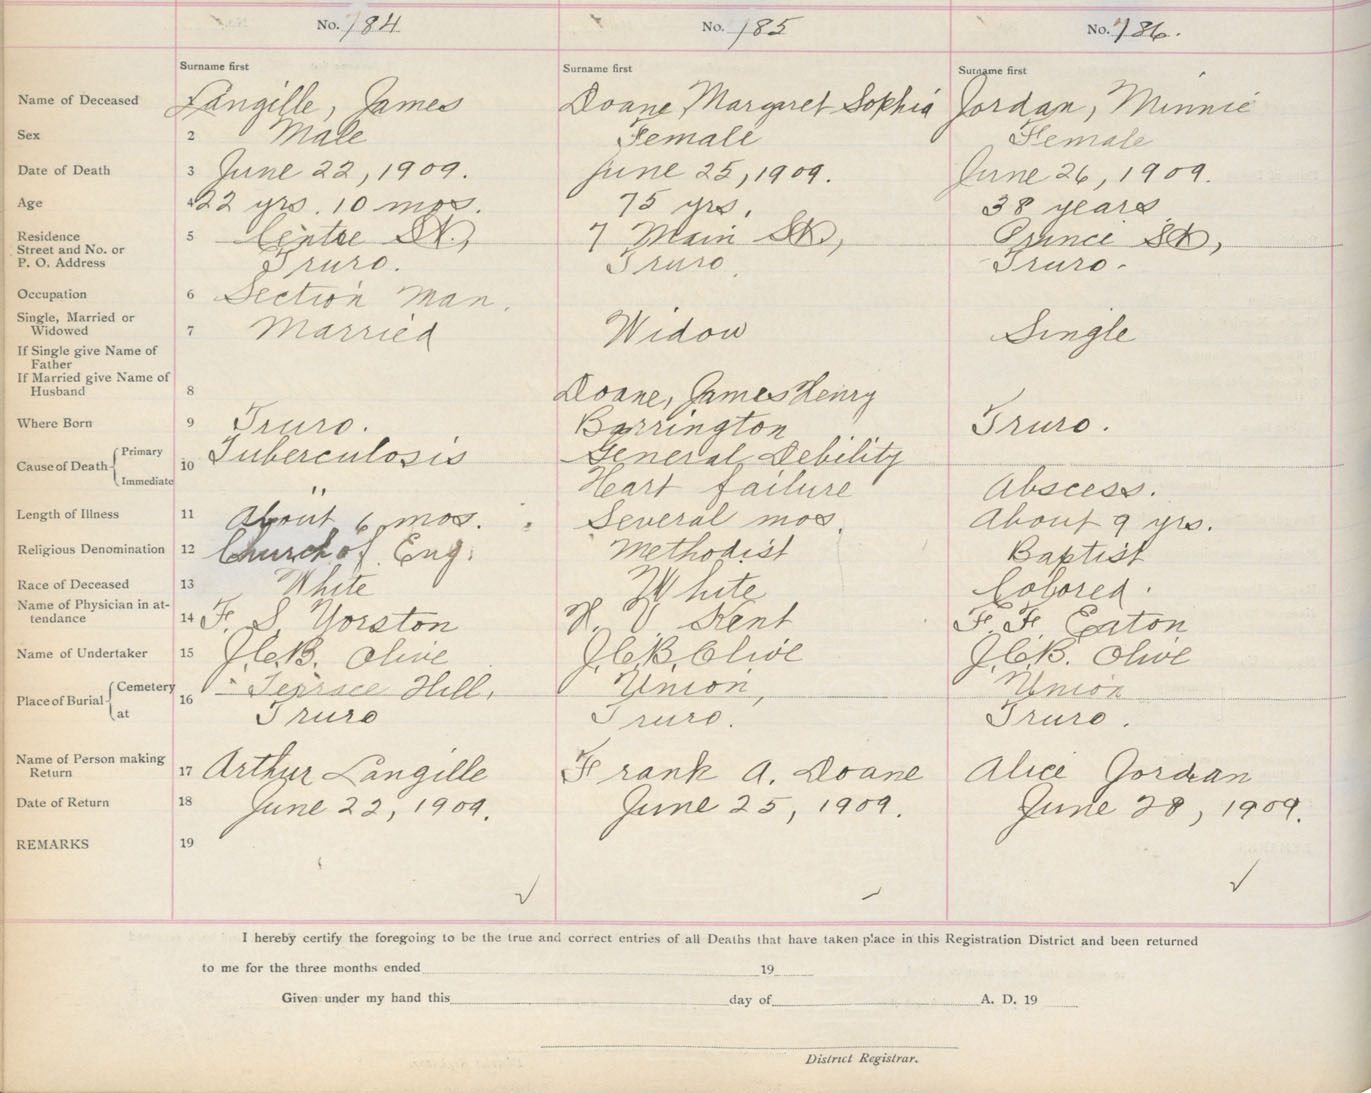 No. 784 No. 785 No. 786.
Surname first Surname first Surname first
Name of Deceased Langille, James Doane, Margaret Sophia Jordan, Minnie
Sex 2 Male Female Female
Date of Death 3 June 22, 1909. June 25, 1909. June 26, 1909.
Age 4 22 yrs. 10 mos. 75 yrs. 38 years
Residence 5 Centre St., 7 Main St., Prince St,
Street and No. or
P. O. Address Truro. Truro. Truro.
Occupation 6 Section man.
Single, Married or
Widowed 7 Married Widow Single
If Single give Name of
Father
If Married give Name of
Husband 8 Doane, James Henry
Where Born 9 Truro. Barrington Truro.
Cause of Death Primary 10 Tuberculosis General Debility
Immediate " Heart failure Abscess.
Length of Illness 11 About 6 mos. Several mos. About 9 yrs.
Religious Denomination 12 Church of Eng. Methodist Baptist
Race of Deceased 13 White White Colored.
Name of Physician in at-
tendance 14 F. S Yorston H. V Kent F. F. Eaton
Name of Undertaker 15 J.C.B. Olive J.C.B. Olive J.C.B. Olive
Place of Burial Cemetery 16 Terrace Hill, Union, Union
at Truro Truro. Truro.
Name of Person making
Return 17 Arthur Langille Frank A. Doane Alice Jordan
Date of Return 18 June 22, 1909. June 25, 1909. June 28, 1909.
REMARKS 19
I hereby certify the foregoing to be the true and correct entries of all Deaths that have taken place in this Registration District and been returned
to me for the three months ended 19
Given under my hand this day of A. D. 19
District Registrar.